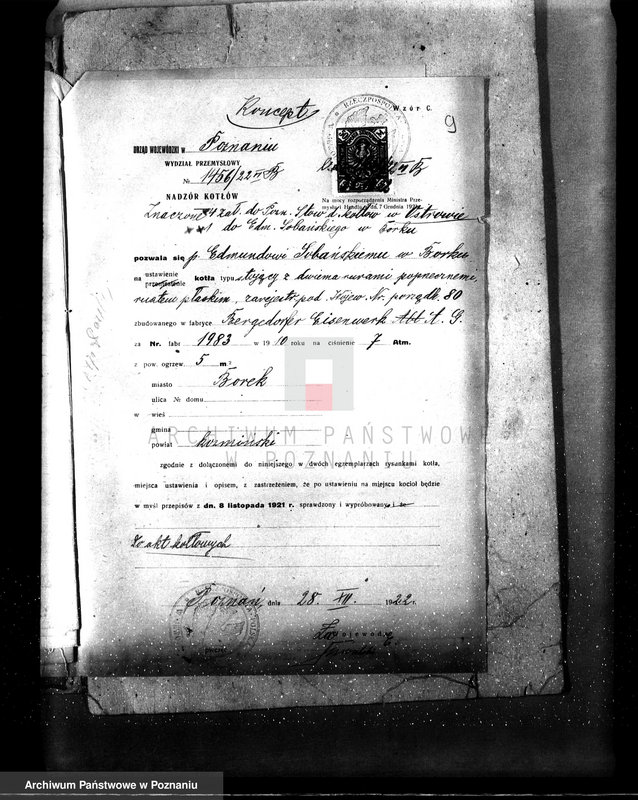 Koncept
Wzór C.
9
RZECZPOSPOLITA
URZĄD WOJEWÓDZKI w Poznaniu
WYDZIAŁ PRZEMYSŁOWY
№ 1456/22
NADZÓR KOTŁÓW
Na mocy rozporządzenia Ministra Prze-
mysłu i Handlu z dn. 7 Grudnia 1921
zał. do Pozn. Stow. d. kotłów w Ostrowie
1 do Edm. Sobańskiego w Borku
pozwala się p. Edmundowi Sobańskiemu w Borku
na ustawienie kotła typu stojący z dwiema rurami poprzecznemi
płaskim, zarejestr. pod Nr. porządk. 80
zbudowanego w fabryce Bergedorfer Eisenwerk A. G.
za Nr. fabr 1983 w 1910 roku na ciśnienie 7 Atm.
z pow. ogrzew. 5 m²
miasto Borek
ulica № domu
w wieś
gmina
powiat koźmiński
zgodnie z dołączonemi do niniejszego w dwóch egzemplarzach rysunkami kotła,
miejsca ustawienia i opisem, z zastrzeżeniem, że po ustawieniu na miejscu kocioł będzie
w myśl przepisów z dn. 8 listopada 1921 r. sprawdzony i wypróbowany i że
Do akt kotłowych
Poznań, dnia 28. XII. 1922 r.
Za Wojewodę
ARCHIWUM PAŃSTWOWE
W POZNANIU
Archiwum Państwowe w Poznaniu